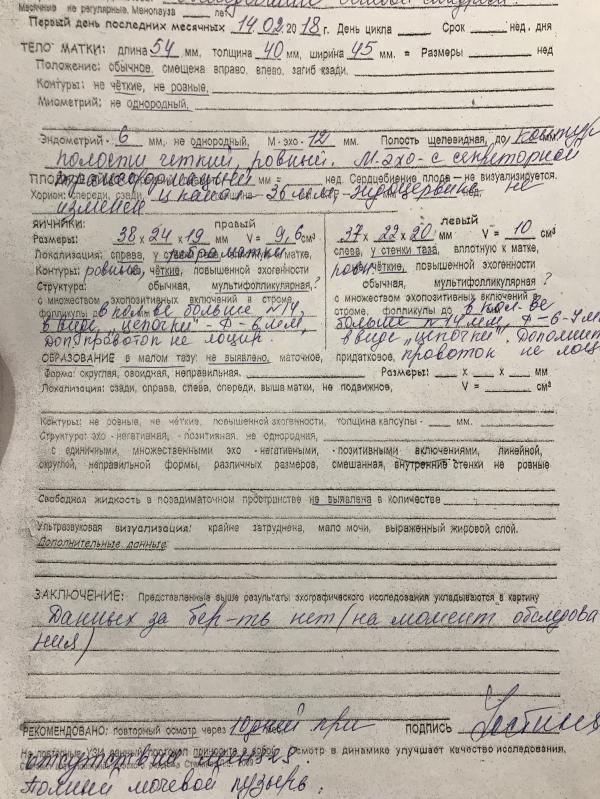 Месячные не регулярные, Менопауза лет
Первый день последних месячных 14.02.2018 г. День цикла Срок нед. дня
ТЕЛО МАТКИ: длина 54 мм, толщина 40 мм, ширина 45 мм = Размеры нед
Положение: обычное, смещена вправо, влево, загиб кзади,
Контуры: не чёткие, не ровные,
Миометрий: не однородный,
Эндометрий - 6 мм, не однородный, М-эхо - 12 мм. Полость щелевидная, до контур
полости четкий, ровный. М-эхо - с секреторной
трансформацией мм = нед. Сердцебиение плода – не визуализируется.
Хорион: спереди, сзади, шейка - 36 мм, эндоцервикс не
изменен
ЯИЧНИКИ: правый левый
Размеры: 38 х 24 х 19 мм V = 9,6 см³ 37 х 22 х 20 мм V = 10 см³
Локализация: справа, у матке, слева, у стенки таза, вплотную к матке,
Контуры: ровные, чёткие, повышенной эхогенности ровн чёткие, повышенной эхогенности
Структура: обычная, мультифолликулярная? обычная, мультифолликулярная?
с множеством эхопозитивных включений в строме, с множеством эхопозитивных включений в строме,
фолликулы до в кол-ве больше №14, фолликулы до в кол-ве
в виде "цепочки" - Ф - 6 мм, больше №14 мм, Ф - 6-7 мм
не лоцир. в виде "цепочки".
не лоц
ОБРАЗОВАНИЕ в малом тазу: не выявлено, маточное, придатковое,
Форма: округлая, овоидная, неправильная. Размеры: х х мм
Локализация: сзади, справа, слева, спереди, выше матки, не подвижное, V = см³
Контуры: не ровные, не чёткие, повышенной эхогенности, толщина капсулы - мм.
Структура: эхо - негативная, - позитивная, не однородная,
с единичными, множественными эхо - негативными, - позитивными включениями, линейной,
округлой, неправильной формы, различных размеров, смешанная, внутренние стенки не ровные
Свободная жидкость в позадиматочном пространстве не выявлена в количестве
Ультразвуковая визуализация: крайне затруднена, мало мочи, выраженный жировой слой.
Дополнительные данные
ЗАКЛЮЧЕНИЕ: Представленные выше результаты эхографического исследования укладываются в картину
Данных за бер-ть нет (на момент обследова
ния)
РЕКОМЕНДОВАНО: повторный осмотр через 10 дней при ПОДПИСЬ
На повторные УЗИ данный протокол приносите с собой осмотр в динамике улучшает качество исследования.
отсутствии
Полный мочевой пузырь.